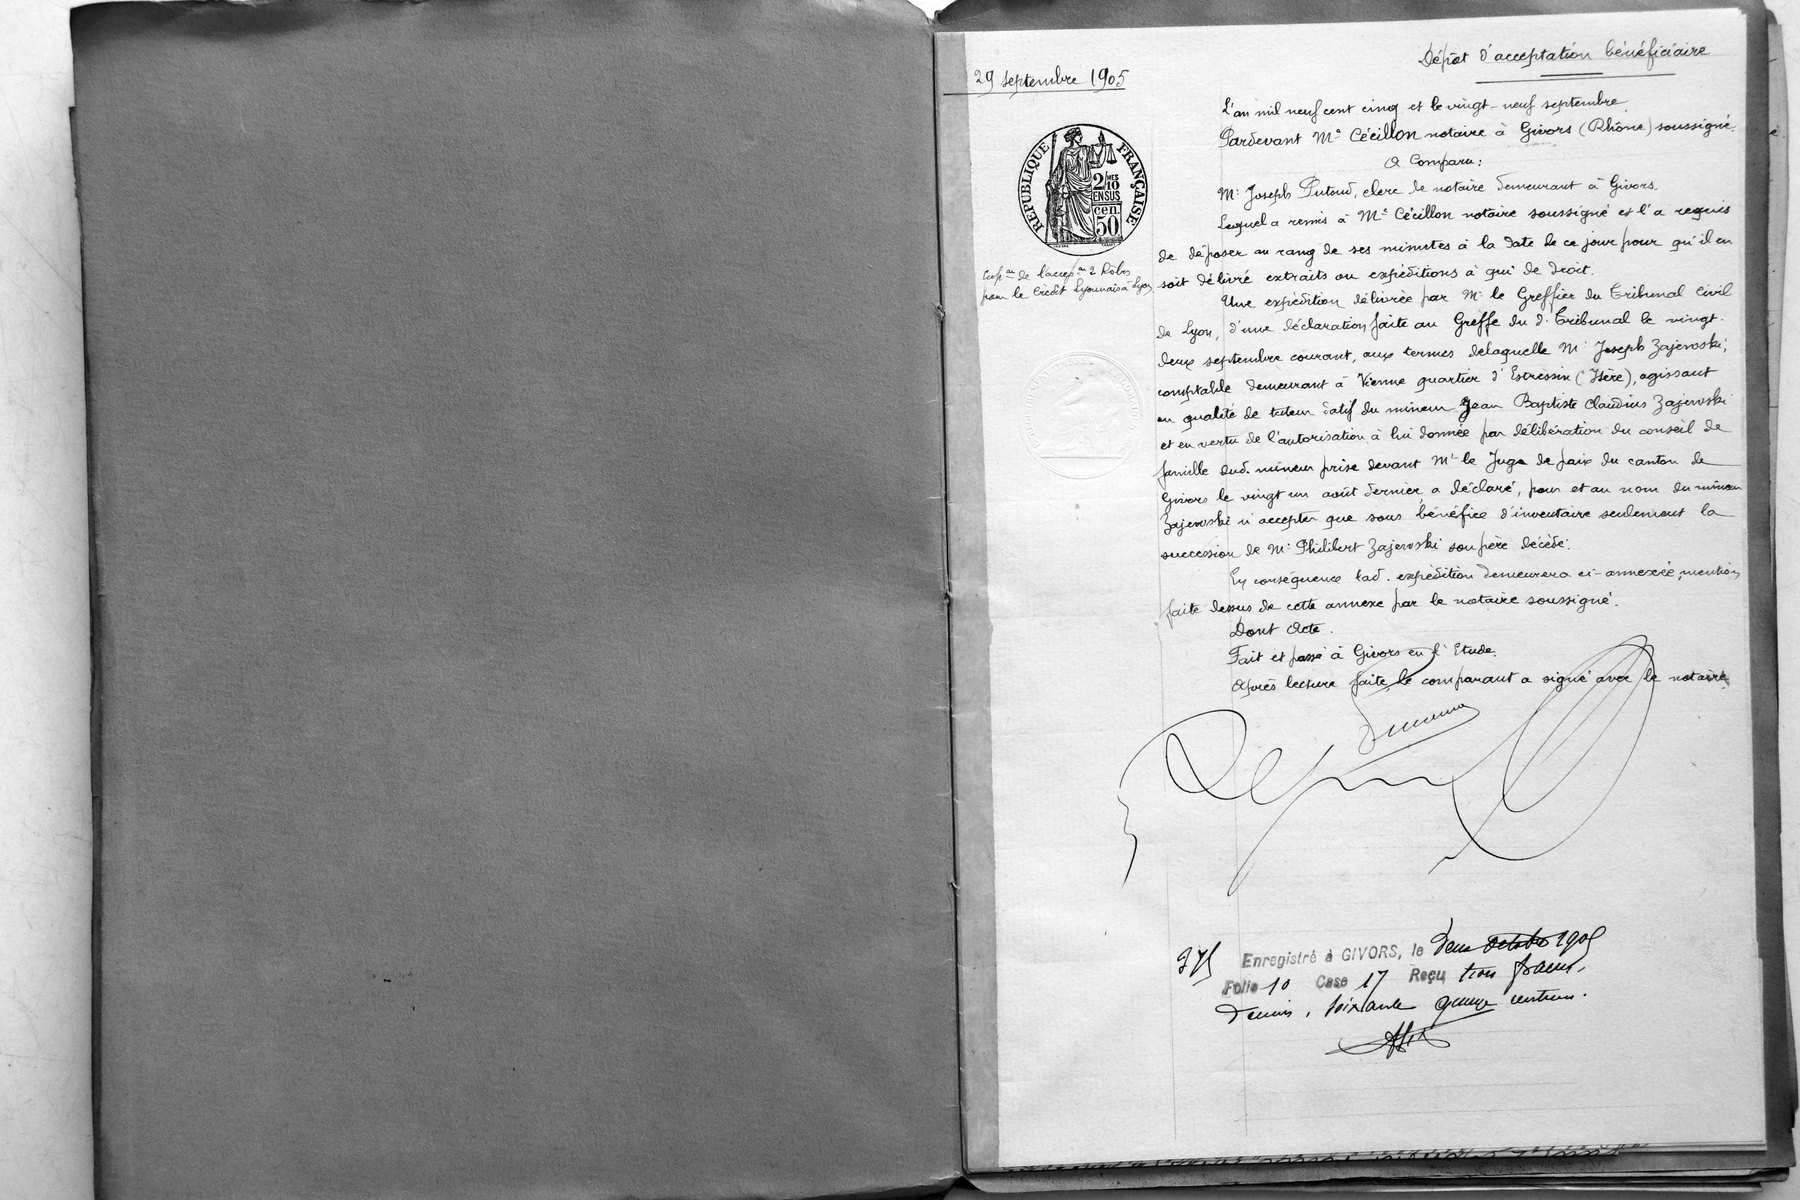 Dépôt d'acceptation bénéficiaire
29 septembre 1905
L'an mil neuf cent cinq et le vingt-neuf septembre
Pardevant Me Cécillon notaire à Givors (Rhône) soussigné.
A Comparu:
Mr Joseph Dutoud, clerc de notaire demeurant à Givors.
Lequel a remis à Me Cécillon notaire soussigné et l'a requis
de déposer au rang de ses minutes à la date de ce jour pour qu'il en
soit délivré extraits ou expéditions à qui de droit.
Une expédition délivrée par Mr le Greffier du Tribunal Civil
de Lyon, d'une déclaration faite au Greffe du d. Tribunal le vingt-
deux septembre courant, aux termes de laquelle Mr Joseph Zajewski,
comptable demeurant à Vienne quartier d'Estressin (Isère), agissant
en qualité de tuteur datif du mineur Jean Baptiste Claudius Zajewski
et en vertu de l'autorisation à lui donnée par délibération du conseil de
famille dud. mineur prise devant Mr le Juge de paix du canton de
Givors le vingt un août dernier, a déclaré, pour et au nom du mineur
Zajewski n'accepter que sous bénéfice d'inventaire seulement la
succession de Mr Philibert Zajewski son père décédé.
En conséquence lad. expédition demeurera ci-annexée, mention
faite dessus de cette annexe par le notaire soussigné.
Dont Acte.
Fait et passé à Givors en l'Etude.
Après lecture faite, le comparant a signé avec le notaire
RÉPUBLIQUE FRANÇAISE
2/10MES
EN SUS
cen.
50
de l'accep.on 2 Robes
pour le Crédit Lyonnais à Lyon
Enregistré à GIVORS, le deux octobre 1905
Folio 10 Case 17 Reçu trois francs,
Décimes, soixante quinze centimes.